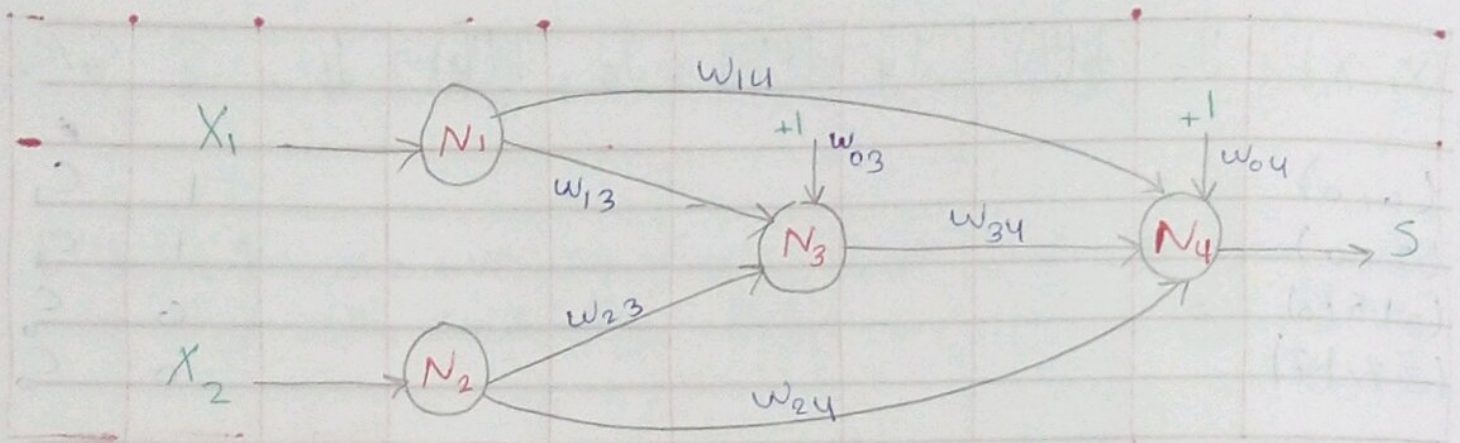 W14
X1
N1
+1
W03
+1
W04
W13
N3
W34
N4
S
W23
X2
N2
W24